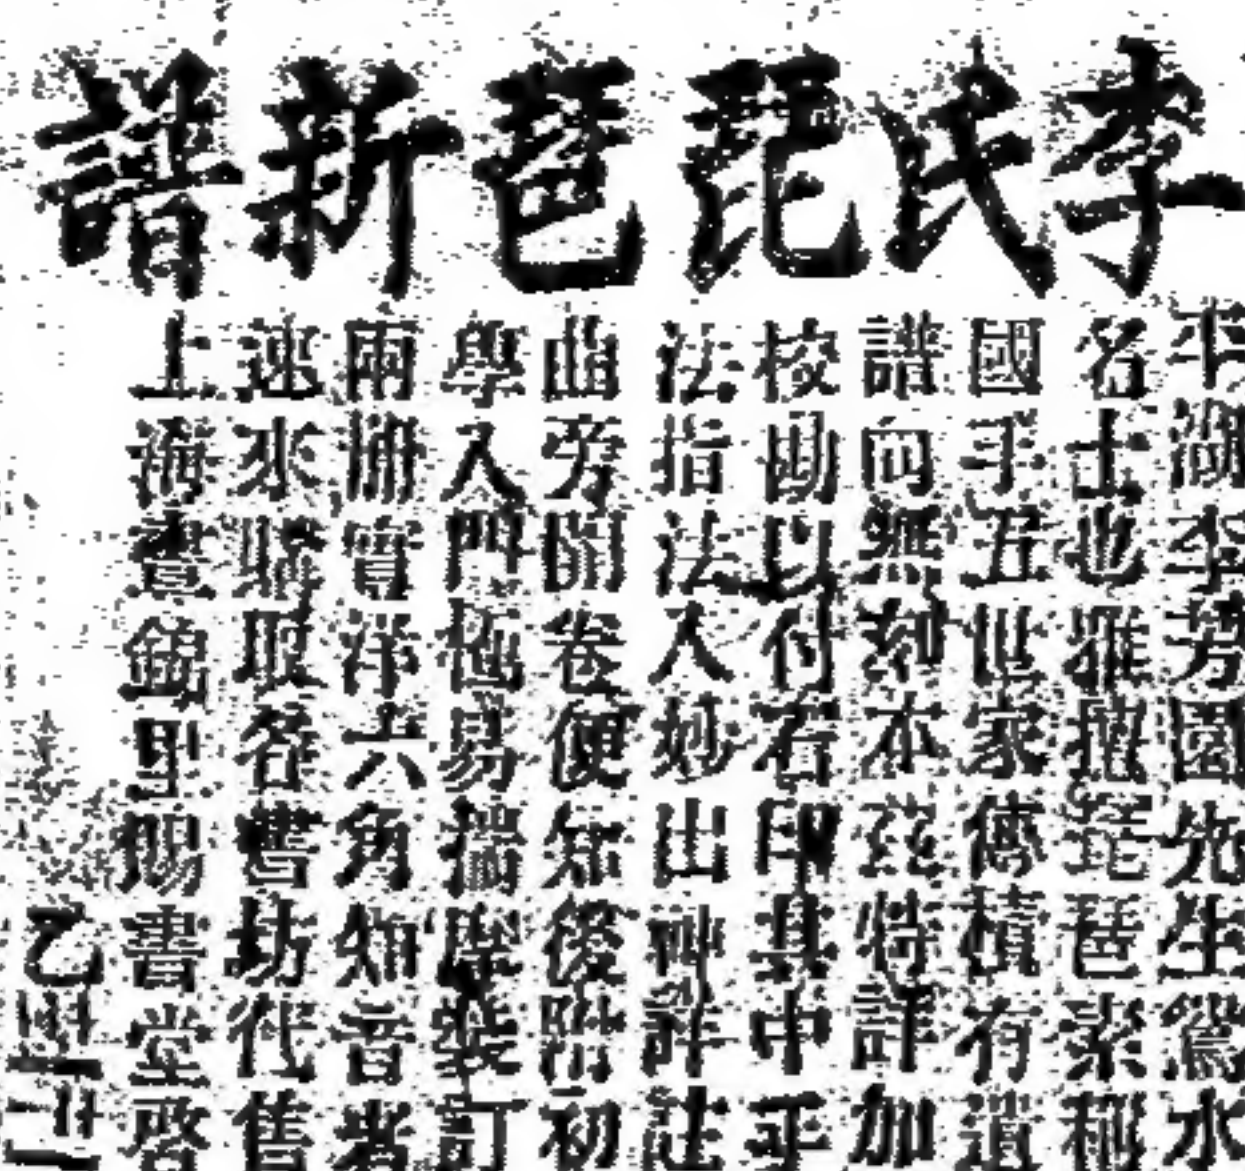 李氏琵琶新譜
平湖李芳園先生鴛水
名士也雅擅琵琶素稱
國手五世家傳積有遺
譜向無刻本茲特詳加
校勘以付石印其中平
法指法入妙出神詳註
曲旁開卷便知後附初
學入門極易揣摩裝訂
兩冊實洋六角知音者
速來購取各書坊代售
上海寶善里賜書堂啓
乙